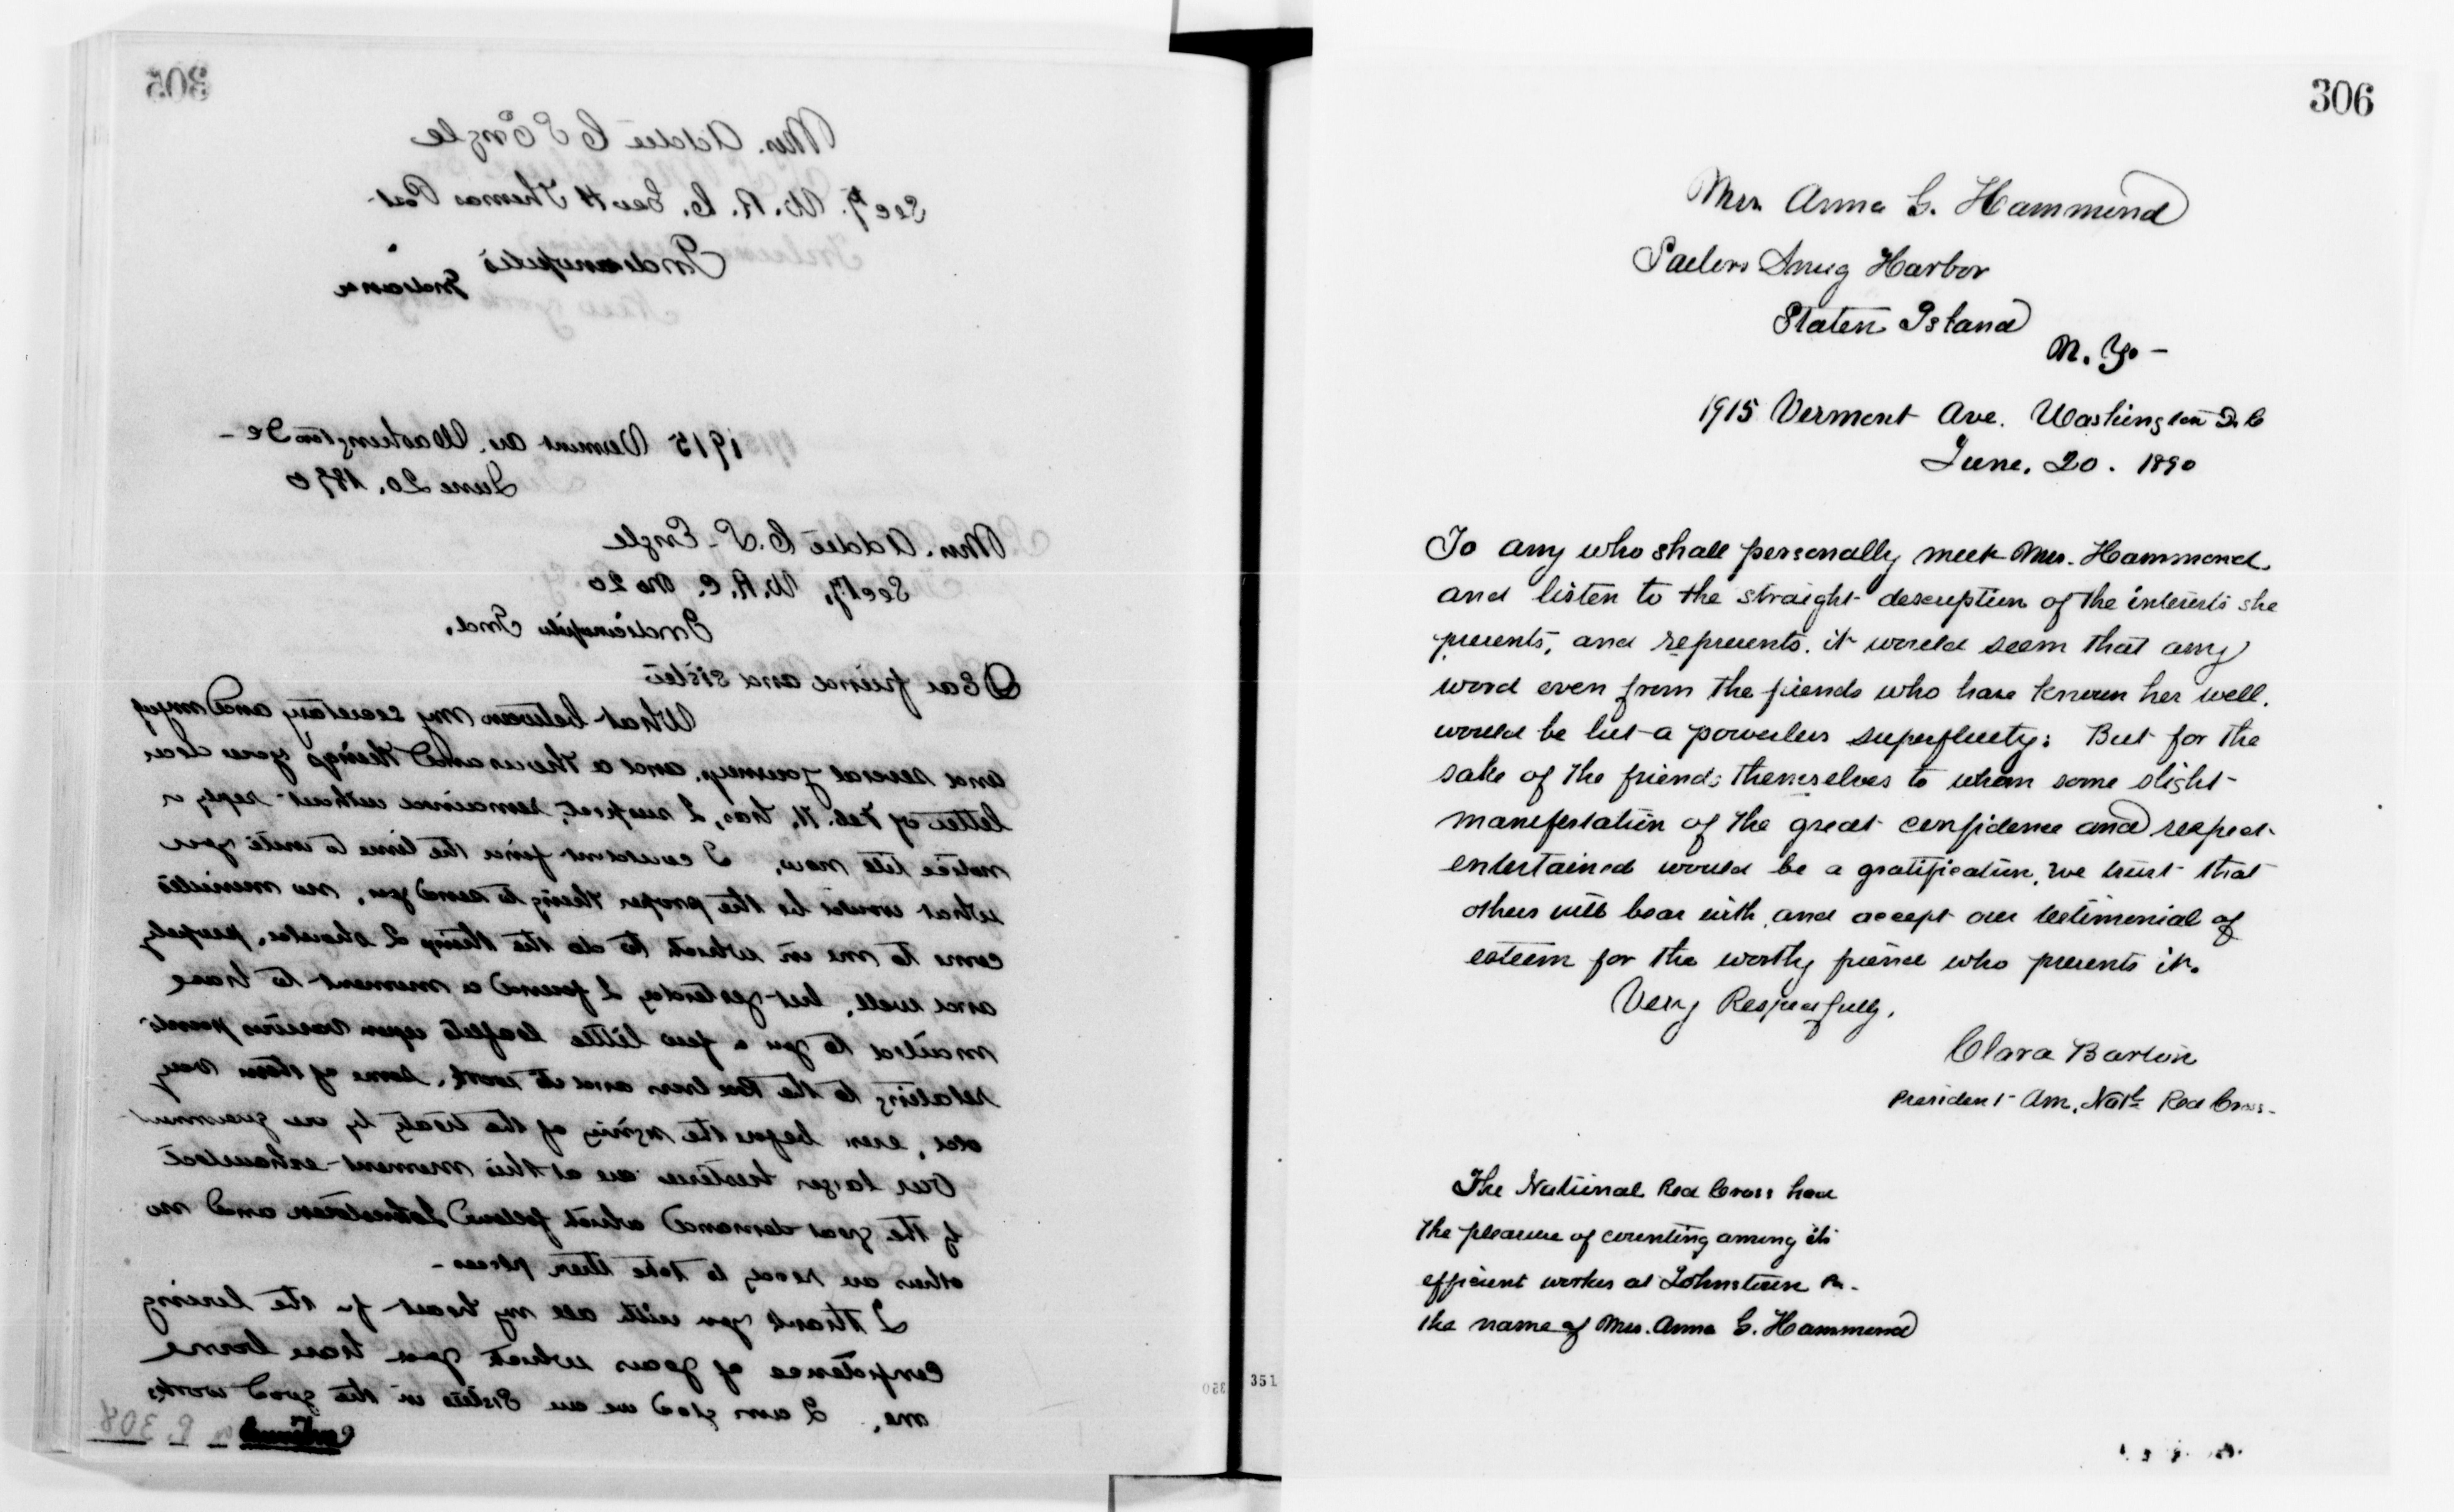 305
Mrs. Addie C S Engle
Secty. W. R. C. Geo H Thomas Post
Indianapolis
Indiana
1915 Vermont av. Washington DC -
June 20, 1890
Mrs. Addie C. S. Engle
Secty, W. R. C. No 20
Indianapolis Ind.
Dear friend and sister
What between my secretary and myself
and several journeys, and a thousand things your dear
letter of Feb. 11, has, I suspect, remained without reply or
notice till now, I couldnt find the time to write you
what would be the proper thing to send you, no minutes
come to me in which to do the things I should, properly
and well, but yesterday I found a moment to have
mailed to you a few little leaflets upon various points
relating to the Red Cross and its work, some of them very
old, even before the signing of the treaty by our government
Our larger histories are at this moment exhausted
by the great demand which followed Johnstown and no
others are ready to take their places -
I thank you with all my heart for the loving
confidence of years which you have borne
me, I am glad we are sisters in the good works
Continued on P. 308
306
Mrs. Anna G. Hammond
Sailors Snug Harbor
Staten Island
N. Y. -
1915 Vermont Ave. Washington D. C
June. 20. 1890
To any who shall personally meet Mrs. Hammond,
and listen to the straight description of the interests she
presents, and represents, it would seem that any
word even from the friends who have known her well,
would be but a powerless superfluity: But for the
sake of the friends themselves to whom some slight
manifestation of the great confidence and respect
entertained would be a gratification, we trust that
others will bear with, and accept our testimonial of
esteem for the worthy friend who presents it.
Very Respectfully,
Clara Barton
President Am. Natl Red Cross-
The National Red Cross had
the pleasure of counting among its
efficient workers at Johnstown Pa -
the name of Mrs. Anna G. Hammond
350 351